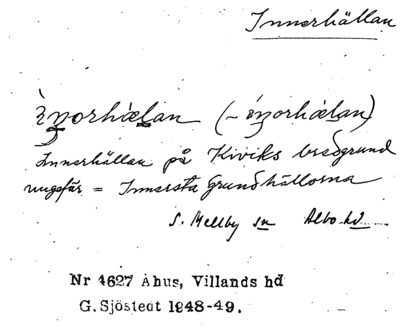 Innerhällan
ìnorhæ̀lan (~ ínorhæ̀lan)
Innerhällan på Kiviks bredgrund
ungefär = Innersta Grundhällorna
S. Mellby sn Albo hd
Nr 4627 Åhus, Villands hd
G. Sjöstedt 1948-49.